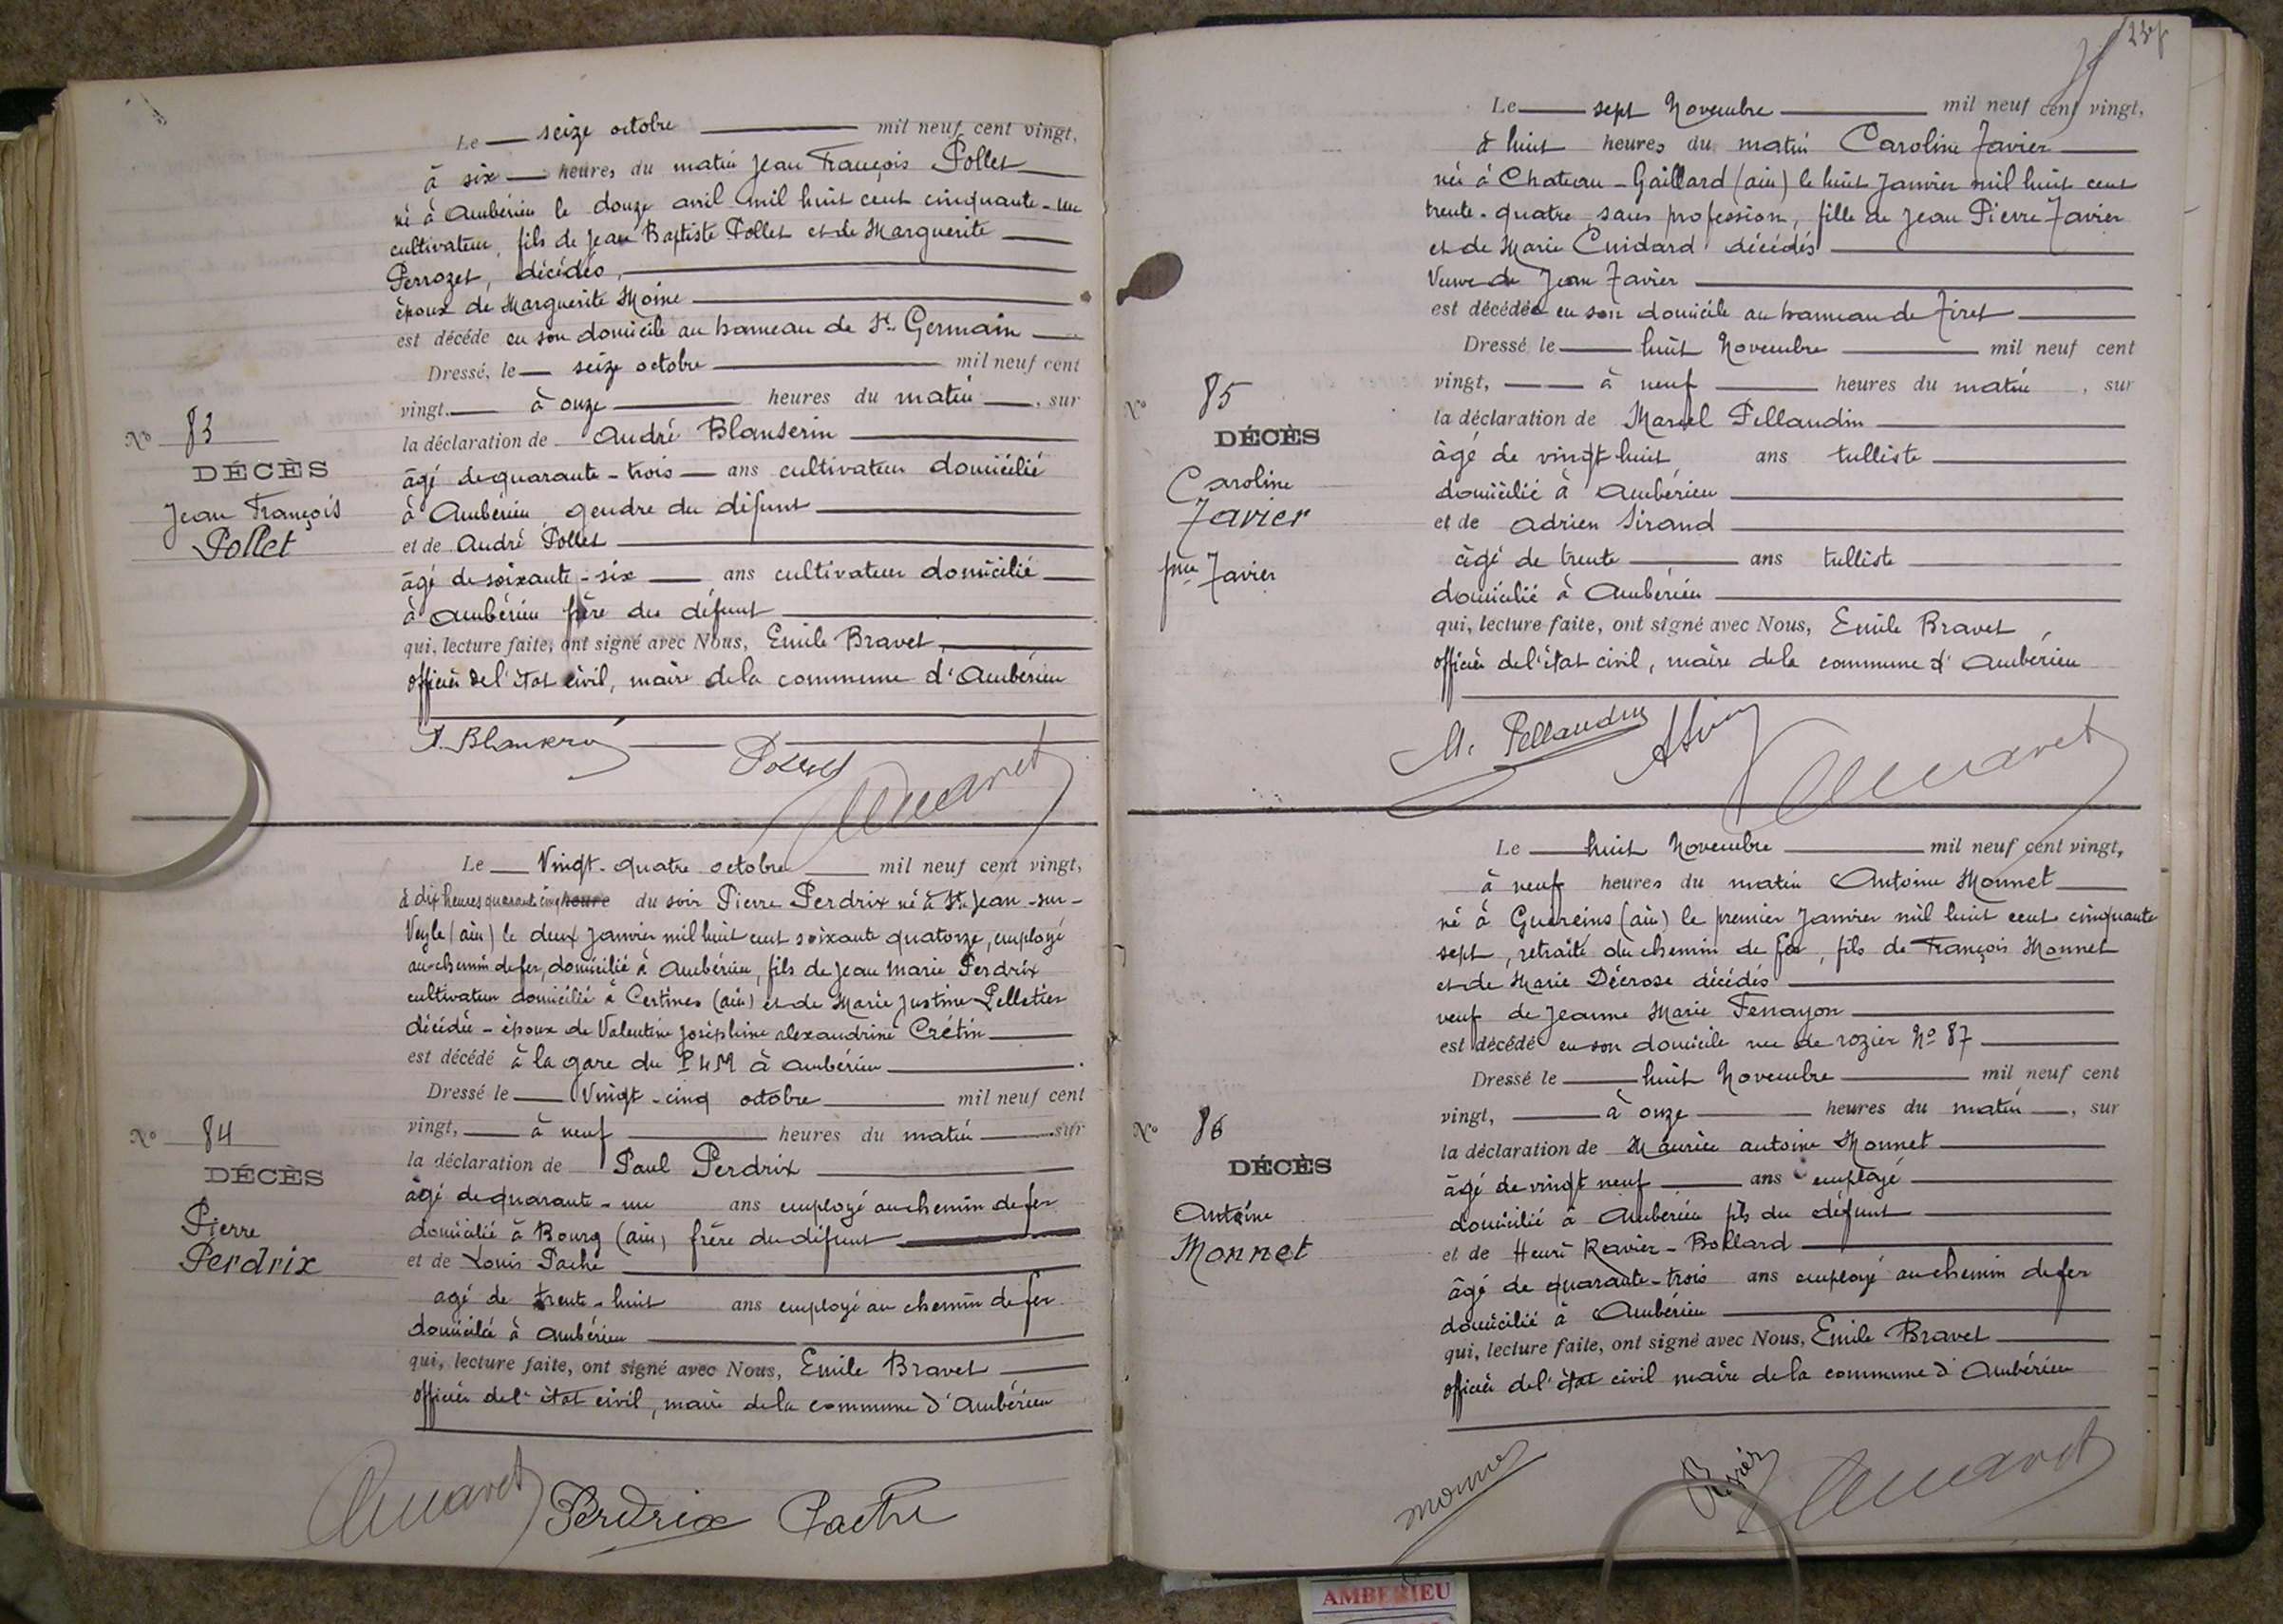 Le seize octobre mil neuf cent vingt,
à six heures du matin Jean François Pollet
né à Ambérieu le douze avril mil huit cent cinquante-un
cultivateur, fils de Jean Baptiste Pollet et de Marguerite
Perrozet, décédés,
époux de Marguerite Moine
est décédé en son domicile au hameau de St Germain
Dressé, le seize octobre mil neuf cent
vingt, à onze heures du matin, sur
la déclaration de André Blanserin
âgé de quarante-trois ans cultivateur domicilié
à Ambérieu gendre du défunt
et de André Pollet
âgé de soixante-six ans cultivateur domicilié
à Ambérieu frère du défunt
qui, lecture faite, ont signé avec Nous, Emile Bravet,
officier de l'état civil, maire de la commune d'Ambérieu
No 83
DÉCÈS
Jean François
Pollet
Pollet
Le Vingt-quatre octobre mil neuf cent vingt,
à dix heures quarante cinq heure du soir Pierre Perdrix né à St Jean-sur-
Veyle (ain) le deux Janvier mil huit cent soixante quatorze, employé
au chemin de fer, domicilié à Ambérieu, fils de Jean Marie Perdrix
cultivateur domicilié à Certines (ain) et de Marie Justine Pelletier
décédée - époux de Valentine Joséphine alexandrine Crétin
est décédé à la gare du PLM à Ambérieu.
Dressé le Vingt-cinq octobre mil neuf cent
vingt, à neuf heures du matin sur
la déclaration de Paul Perdrix
âgé de quarante-un ans employé au chemin de fer
domicilié à Bourg (ain) frère du défunt
et de Louis Pache
agé de trente-huit ans employé au chemin de fer
domicilié à Ambérieu
qui, lecture faite, ont signé avec Nous, Emile Bravet
officier de l'état civil, maire de la commune d'Ambérieu
No 84
DÉCÈS
Pierre
Perdrix
Perdrix Pache
Le sept Novembre mil neuf cent vingt,
à huit heures du matin Caroline Javier
née à Chateau-Gaillard (ain) le huit Janvier mil huit cent
trente-quatre sans profession, fille de Jean Pierre Javier
et de Marie Cuidard décédés
Veuve de Jean Javier
est décédée en son domicile au hameau de Tiret
Dressé, le huit Novembre mil neuf cent
vingt, à neuf heures du matin, sur
la déclaration de Marcel Pellaudin
âgé de vingt huit ans tulliste
domicilié à Ambérieu
et de Adrien Sirand
âgé de trente ans tulliste
domicilié à Ambérieu
qui, lecture faite, ont signé avec Nous, Emile Bravet,
officier de l'état civil, maire de la commune d'Ambérieu
No 85
DÉCÈS
Caroline
Javier
fme Javier
M. Pellaudin
Le huit Novembre mil neuf cent vingt,
à neuf heures du matin Antoine Monnet
né à Guéreins (ain) le premier Janvier mil huit cent cinquante
sept, retraité du chemin de fer, fils de François Monnet
et de Marie Décrose décédés
veuf de Jeanne Marie Ferrayon
est décédé en son domicile rue de rozier No 87
Dressé le huit Novembre mil neuf cent
vingt, à onze heures du matin, sur
la déclaration de Maurice antoine Monnet
âgé de vingt neuf ans employé
domicilié à Ambérieu fils du défunt
et de Henri Ravier-Bollard
âgé de quarante-trois ans employé au chemin de fer
domicilié à Ambérieu
qui, lecture faite, ont signé avec Nous, Emile Bravet
officier de l'état civil maire de la commune d'Ambérieu
No 86
DÉCÈS
Antoine
Monnet
Monnet
Ravier
AMBERIEU